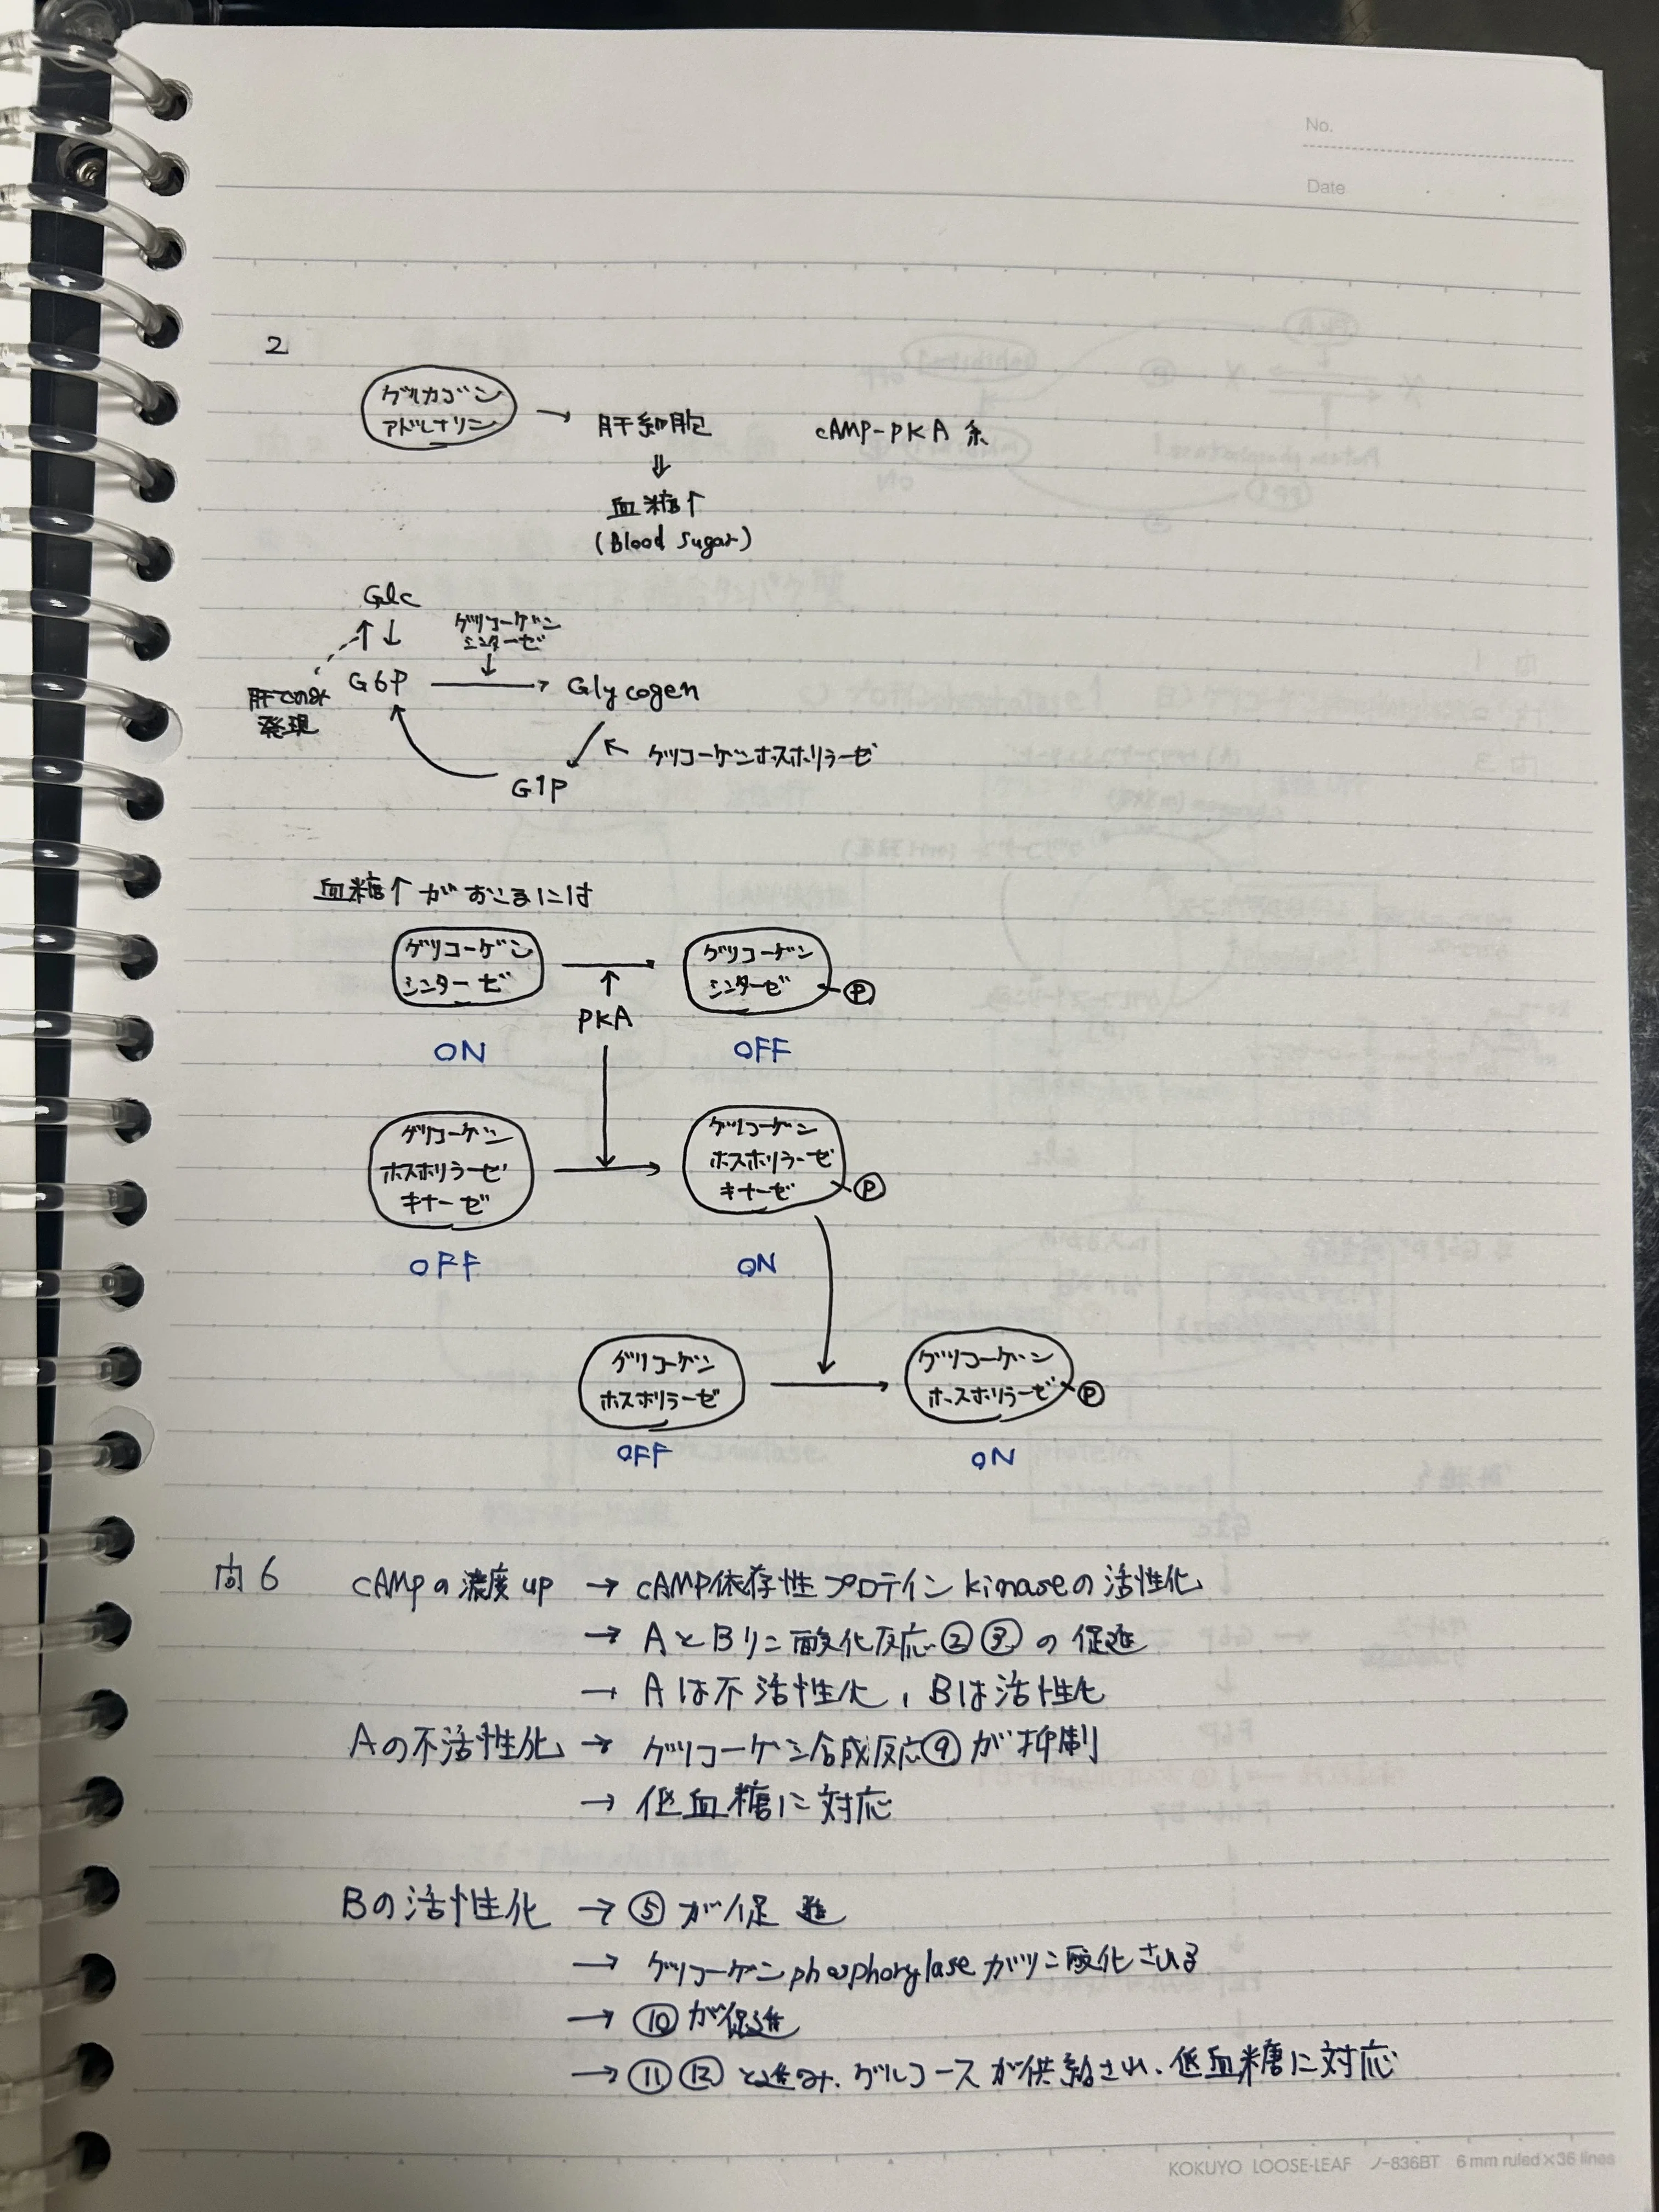 No.
Date
2
グルカゴン
アドレナリン
→ 肝細胞
cAMP-PKA 系
⇓
血糖↑
(Blood Sugar)
Glc
↑↓
グリコーゲン
シンターゼ
↓
G6P → Glycogen
肝でのみ
発現
グリコーゲンホスホリラーゼ
G1P
血糖↑がおこるには
グリコーゲン
シンターゼ
→
グリコーゲン
シンターゼ
Ⓟ
↑
PKA
ON
OFF
グリコーゲン
ホスホリラーゼ
キナーゼ
→
グリコーゲン
ホスホリラーゼ
キナーゼ
Ⓟ
OFF
ON
グリコーゲン
ホスホリラーゼ
→
グリコーゲン
ホスホリラーゼ
Ⓟ
OFF
ON
問6 cAMPの濃度up → cAMP依存性プロテインkinaseの活性化
→ AとBリン酸化反応②③の促進
→ Aは不活性化, Bは活性化
Aの不活性化 → グリコーゲン合成反応⑨が抑制
→ 低血糖に対応
Bの活性化 → ⑤が促進
→ グリコーゲンphosphorylaseがリン酸化される
→ ⑩が促進
→ ⑪⑫と進み、グルコースが供給され、低血糖に対応
KOKUYO LOOSE-LEAF ノ-836BT 6mm ruled×36 lines